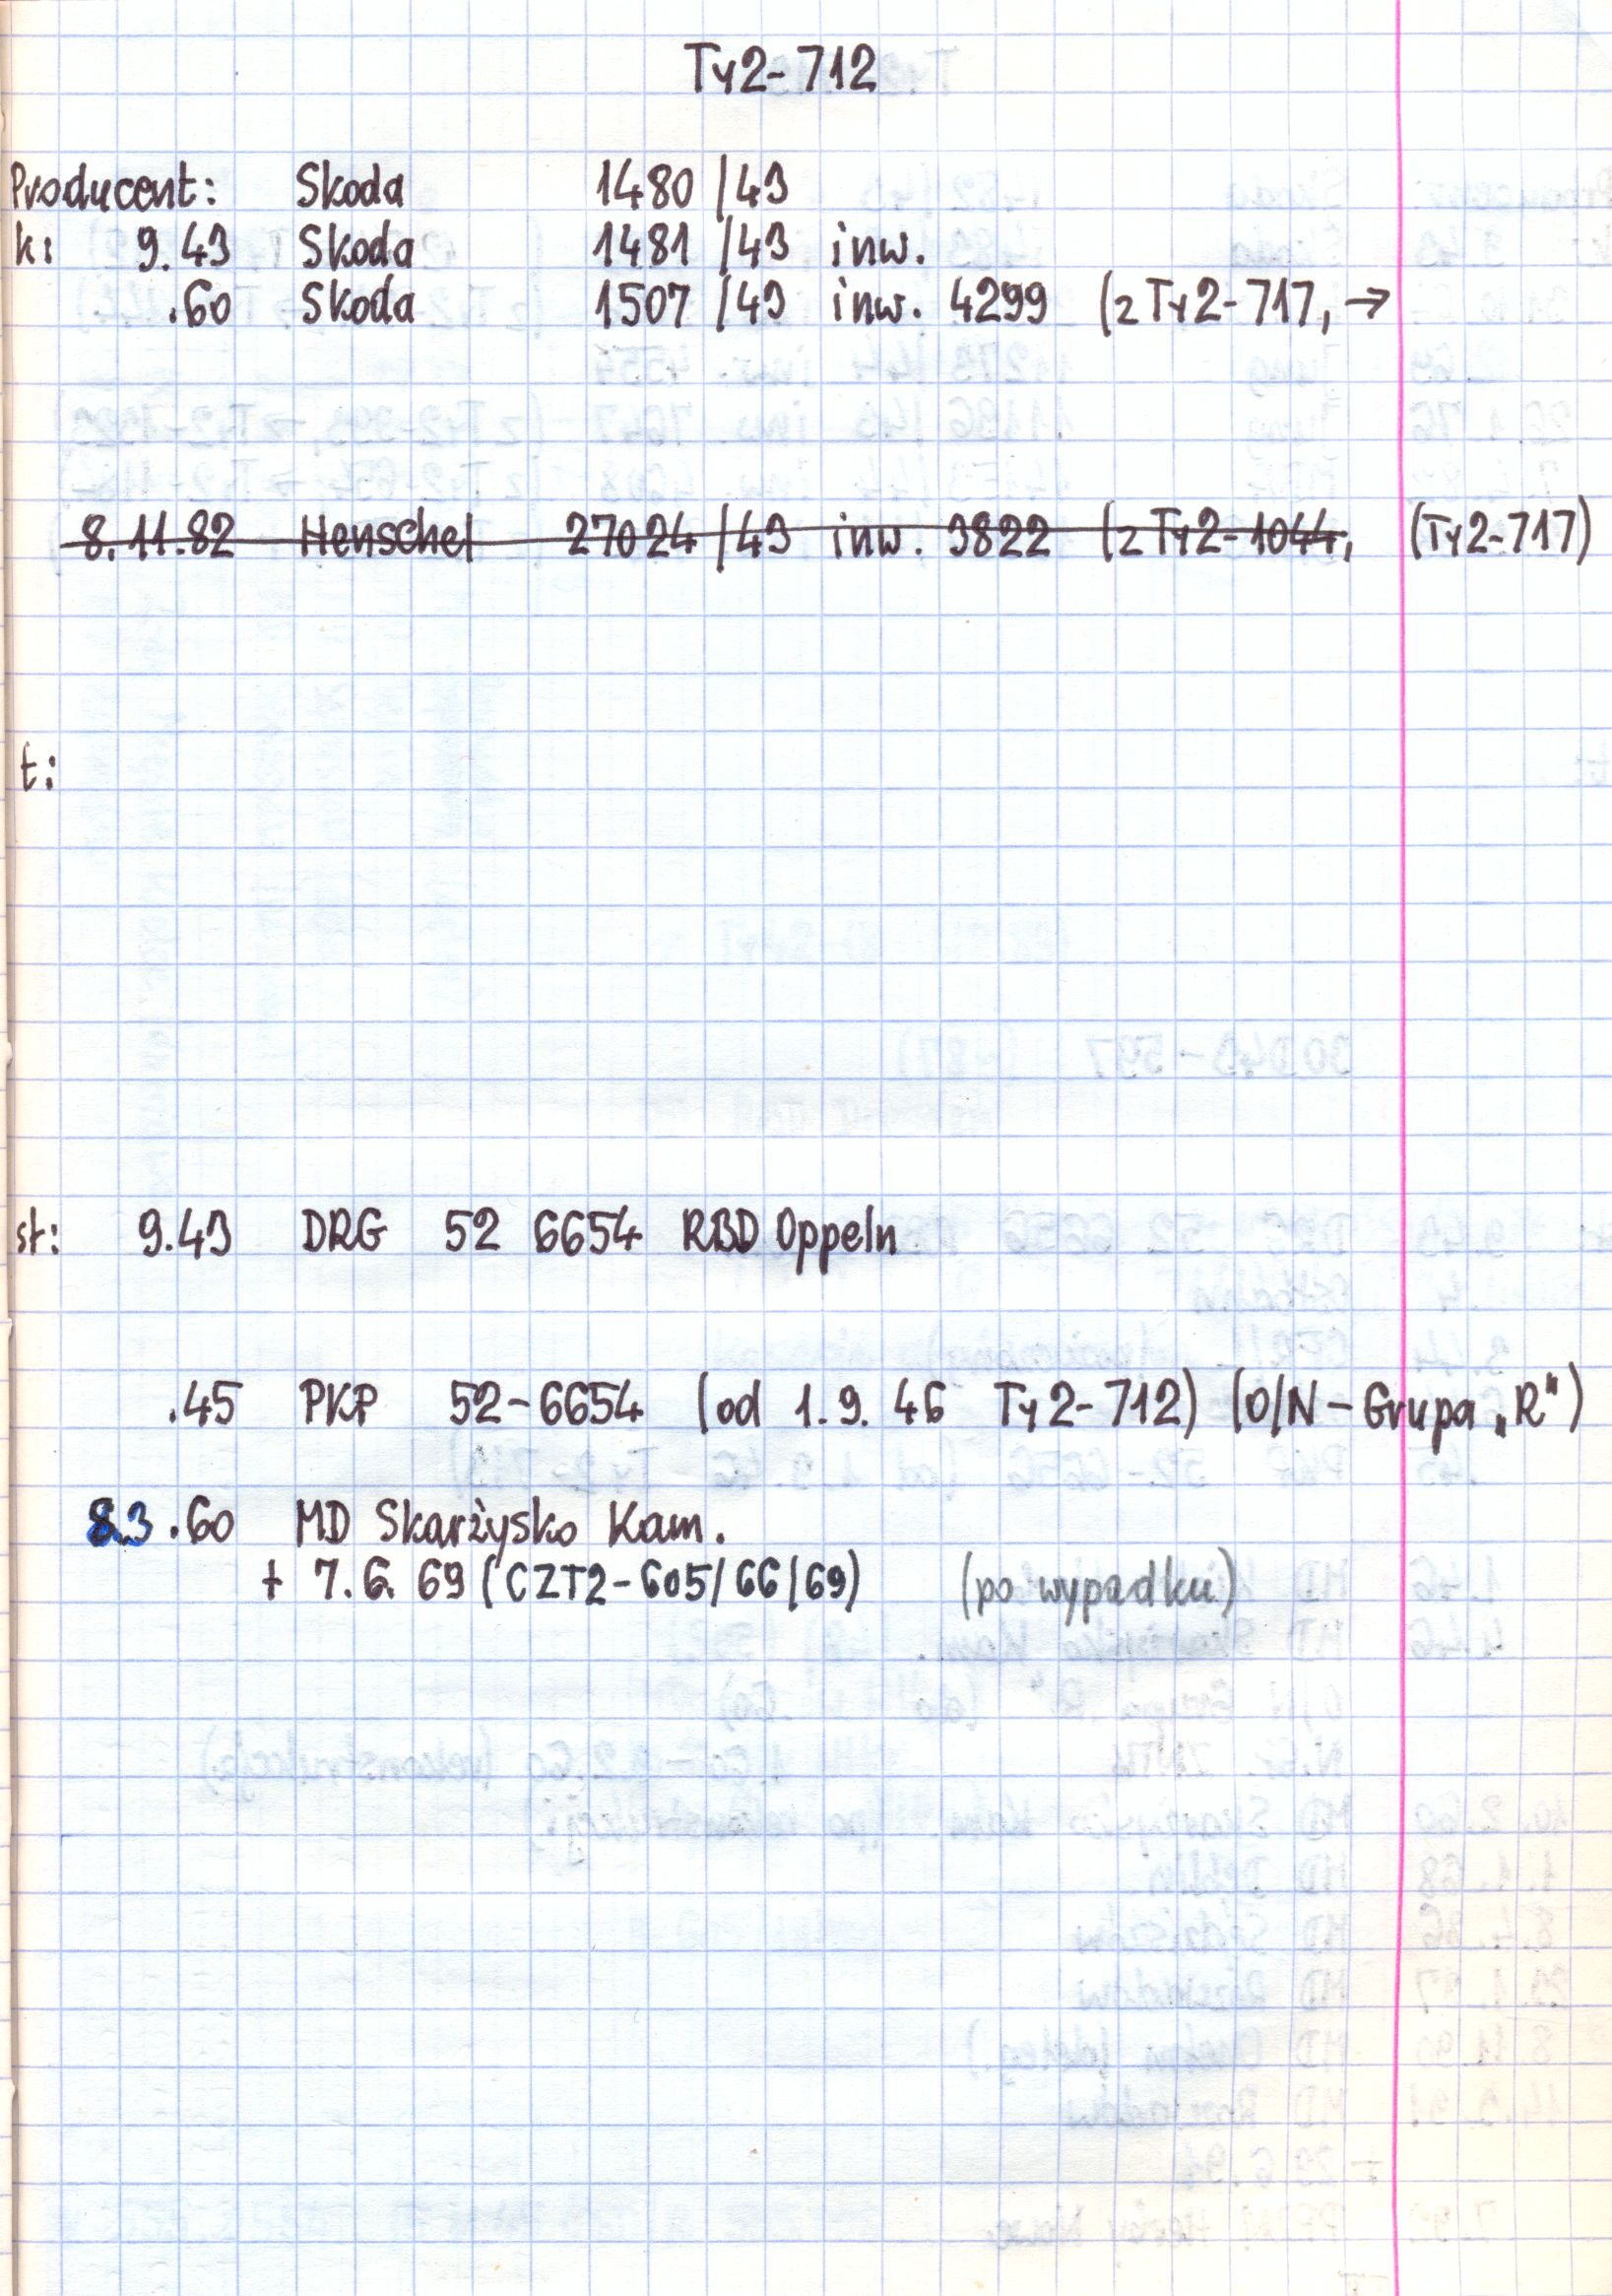 Ty2-712
Producent: Skoda 1480/43
k: 9.43 Skoda 1481/43 inw.
.60 Skoda 1507/43 inw. 4299 (z Ty2-717, →
8.11.82 Henschel 27024/43 inw. 3822 (z Ty2-1044, (Ty2-717)
t:
st: 9.43 DRG 52 6654 RBD Oppeln
.45 PKP 52-6654 (od 1.9.46 Ty2-712) (O/N - Grupa „R")
8.3.60 MD Skarżysko Kam.
+ 7.6.69 (CZT2-605/66/69) (po wypadku)